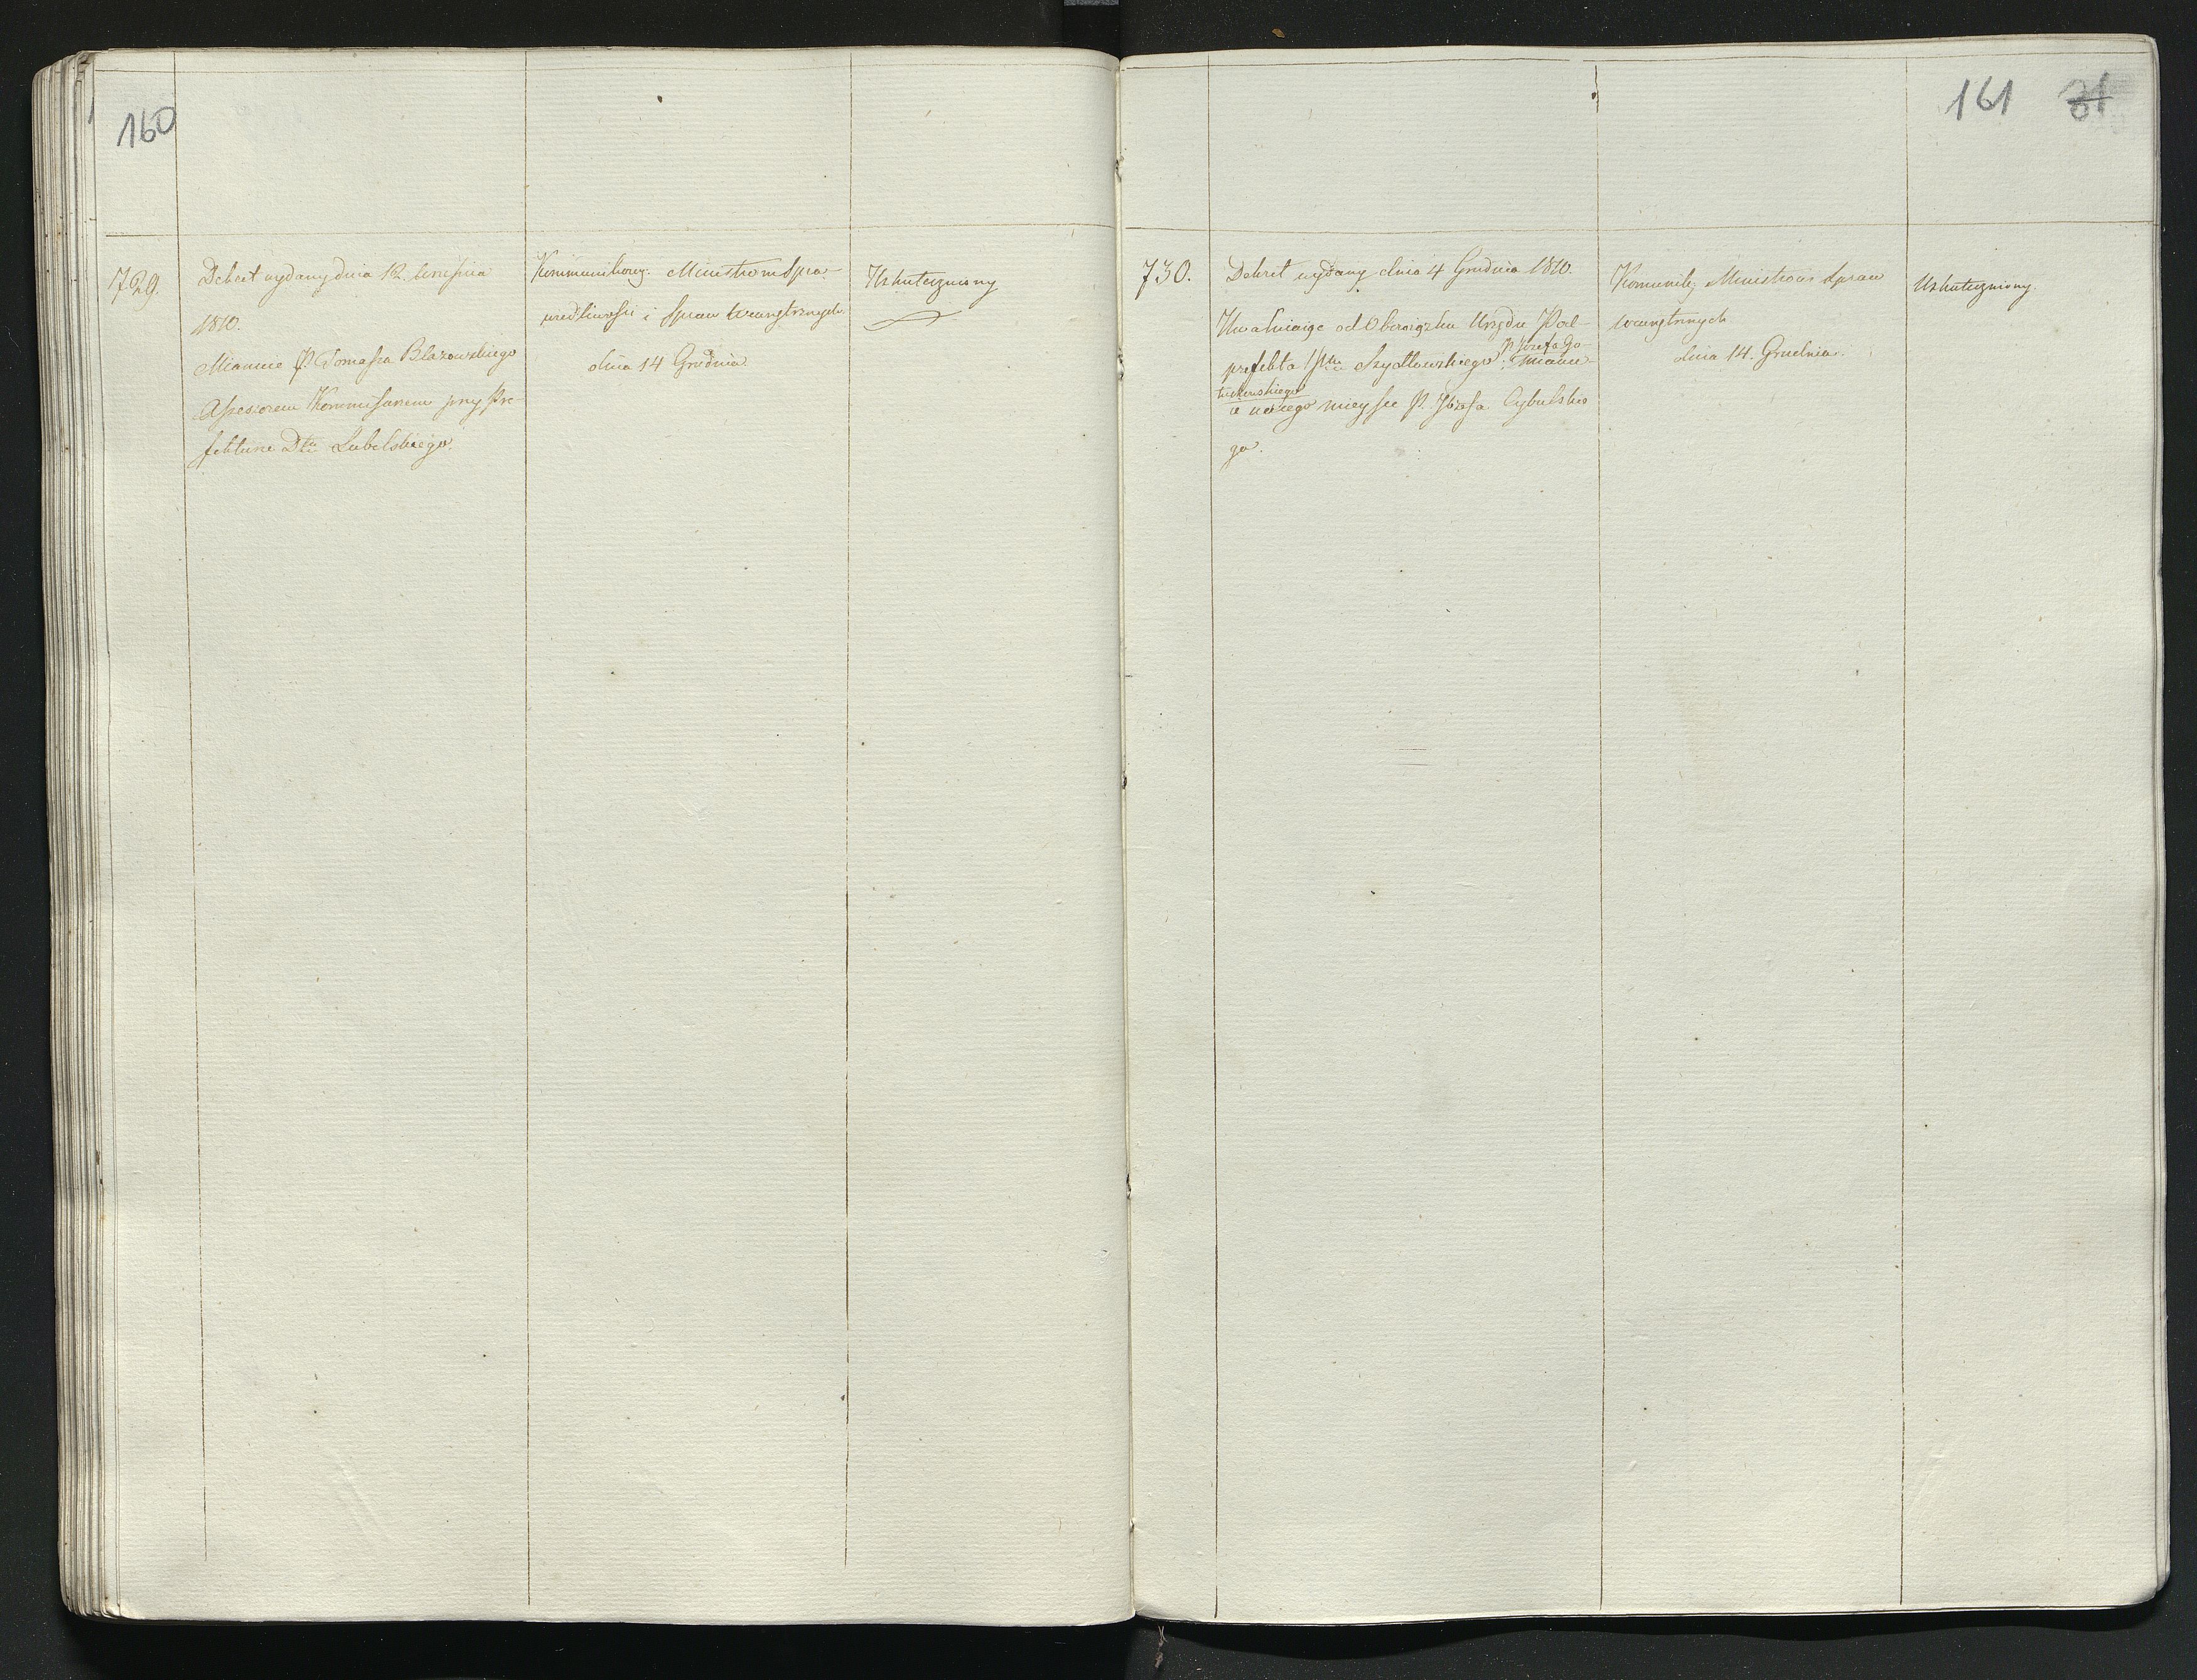 160
729.
Dekret wydany dnia 12 Września
1810.
Mianuie P. Tomasza Błazowskiego
Assessorem Kommissarzem przy Pre-
fekturze Dttu Lubelskiego.
Kommunikowany Ministrom Spra-
wiedliwości i Spraw Wewnętrznych
dnia 14 Grudnia
Uskuteczniony
161 81
730.
Dekret wydany dnia 4 Grudnia 1810.
Uwalniaiąc od Obowiązku Urzędu Pod-
prefekta Pttu Szydłowskiego P. Józefa Go-
mianu-
ie na iego mieysce P. Józefa Cybulskie
go.
Komunik: Ministrowi Spraw
wewnętrznych
dnia 14. Grudnia.
Uskuteczniony.